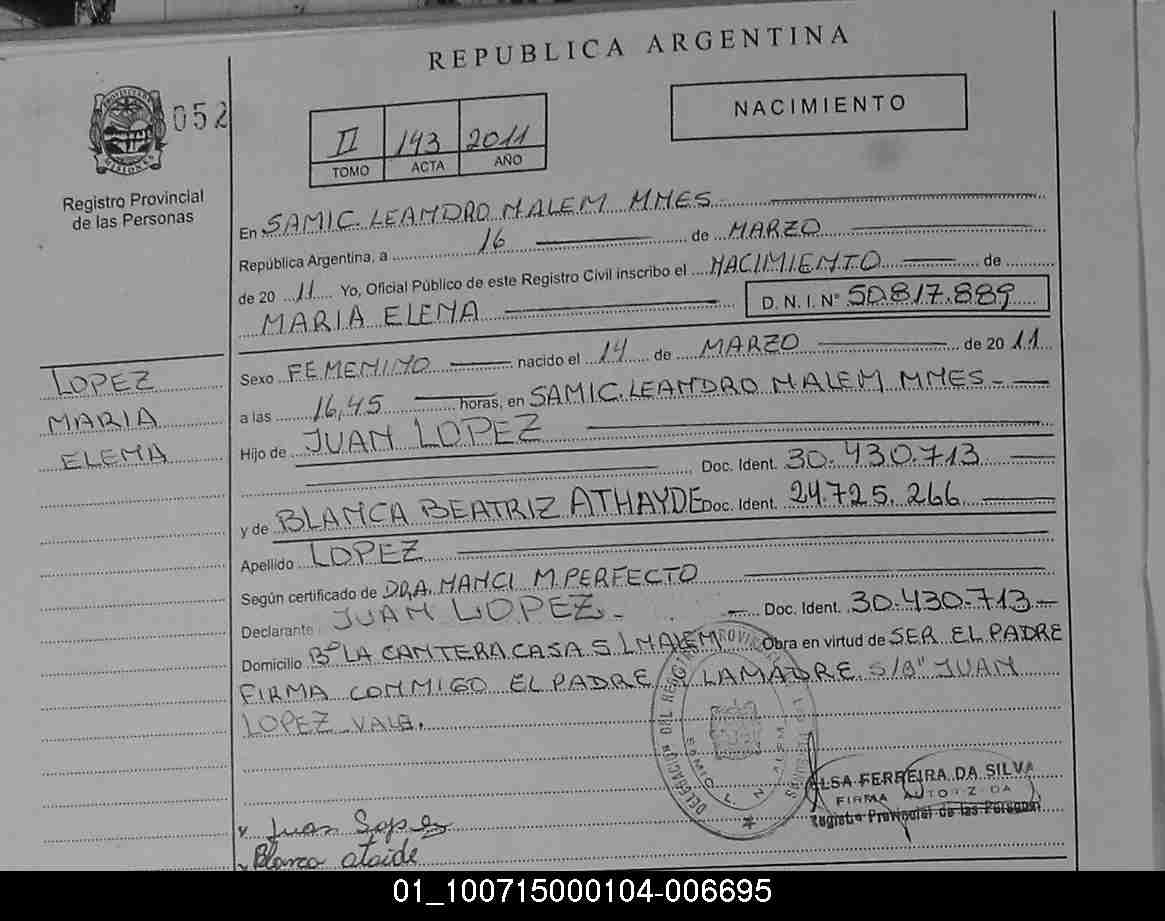 REPUBLICA ARGENTINA
052
NACIMIENTO
II 193 2011
TOMO ACTA AÑO
PROVINCIA DE MISIONES
Registro Provincial
de las Personas
En SAMIC. LEANDRO N ALEM MNES
República Argentina, a 16 de MARZO
de 20 11 Yo, Oficial Público de este Registro Civil inscribo el NACIMIENTO de
MARIA ELENA D. N. I. N° 50.817.889
LOPEZ
MARIA
ELENA
Sexo FEMENINO nacido el 14 de MARZO de 20 11
a las 16,45 horas, en SAMIC. LEANDRO N ALEM MNES -
Hijo de JUAN LOPEZ
Doc. Ident. 30.430.713
y de BLANCA BEATRIZ ATHAYDE Doc. Ident. 24.725.266
Apellido LOPEZ
Según certificado de DRA. NANCI M PERFECTO
Declarante JUAN LOPEZ - Doc. Ident. 30.430.713
Domicilio B° LA CANTERA CASA S/ N ALEM Obra en virtud de SER EL PADRE
FIRMA CONMIGO EL PADRE Y LA MADRE S/B" JUAN
LOPEZ VALE.
DELEGACION DEL REGISTRO PROVINCIAL
ELSA FERREIRA DA SILVA
FIRMA AUTORIZADA
Registro Provincial de las Personas
x Juan Lopez
Blanca ataide
01_100715000104-006695